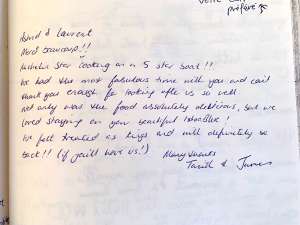 votre
préférée
Astrid & Laurent
Merci beaucoup!!
Michelin Star cooking on a 5 star boat!!
We had the most fabulous time with you and can't
thank you enough for looking after us so well.
Not only was the food absolutely delicious, but we
loved staying on your beautiful
We felt treated as kings and will definitely be
back!! (if you'll have us!)
Many thanks
& James